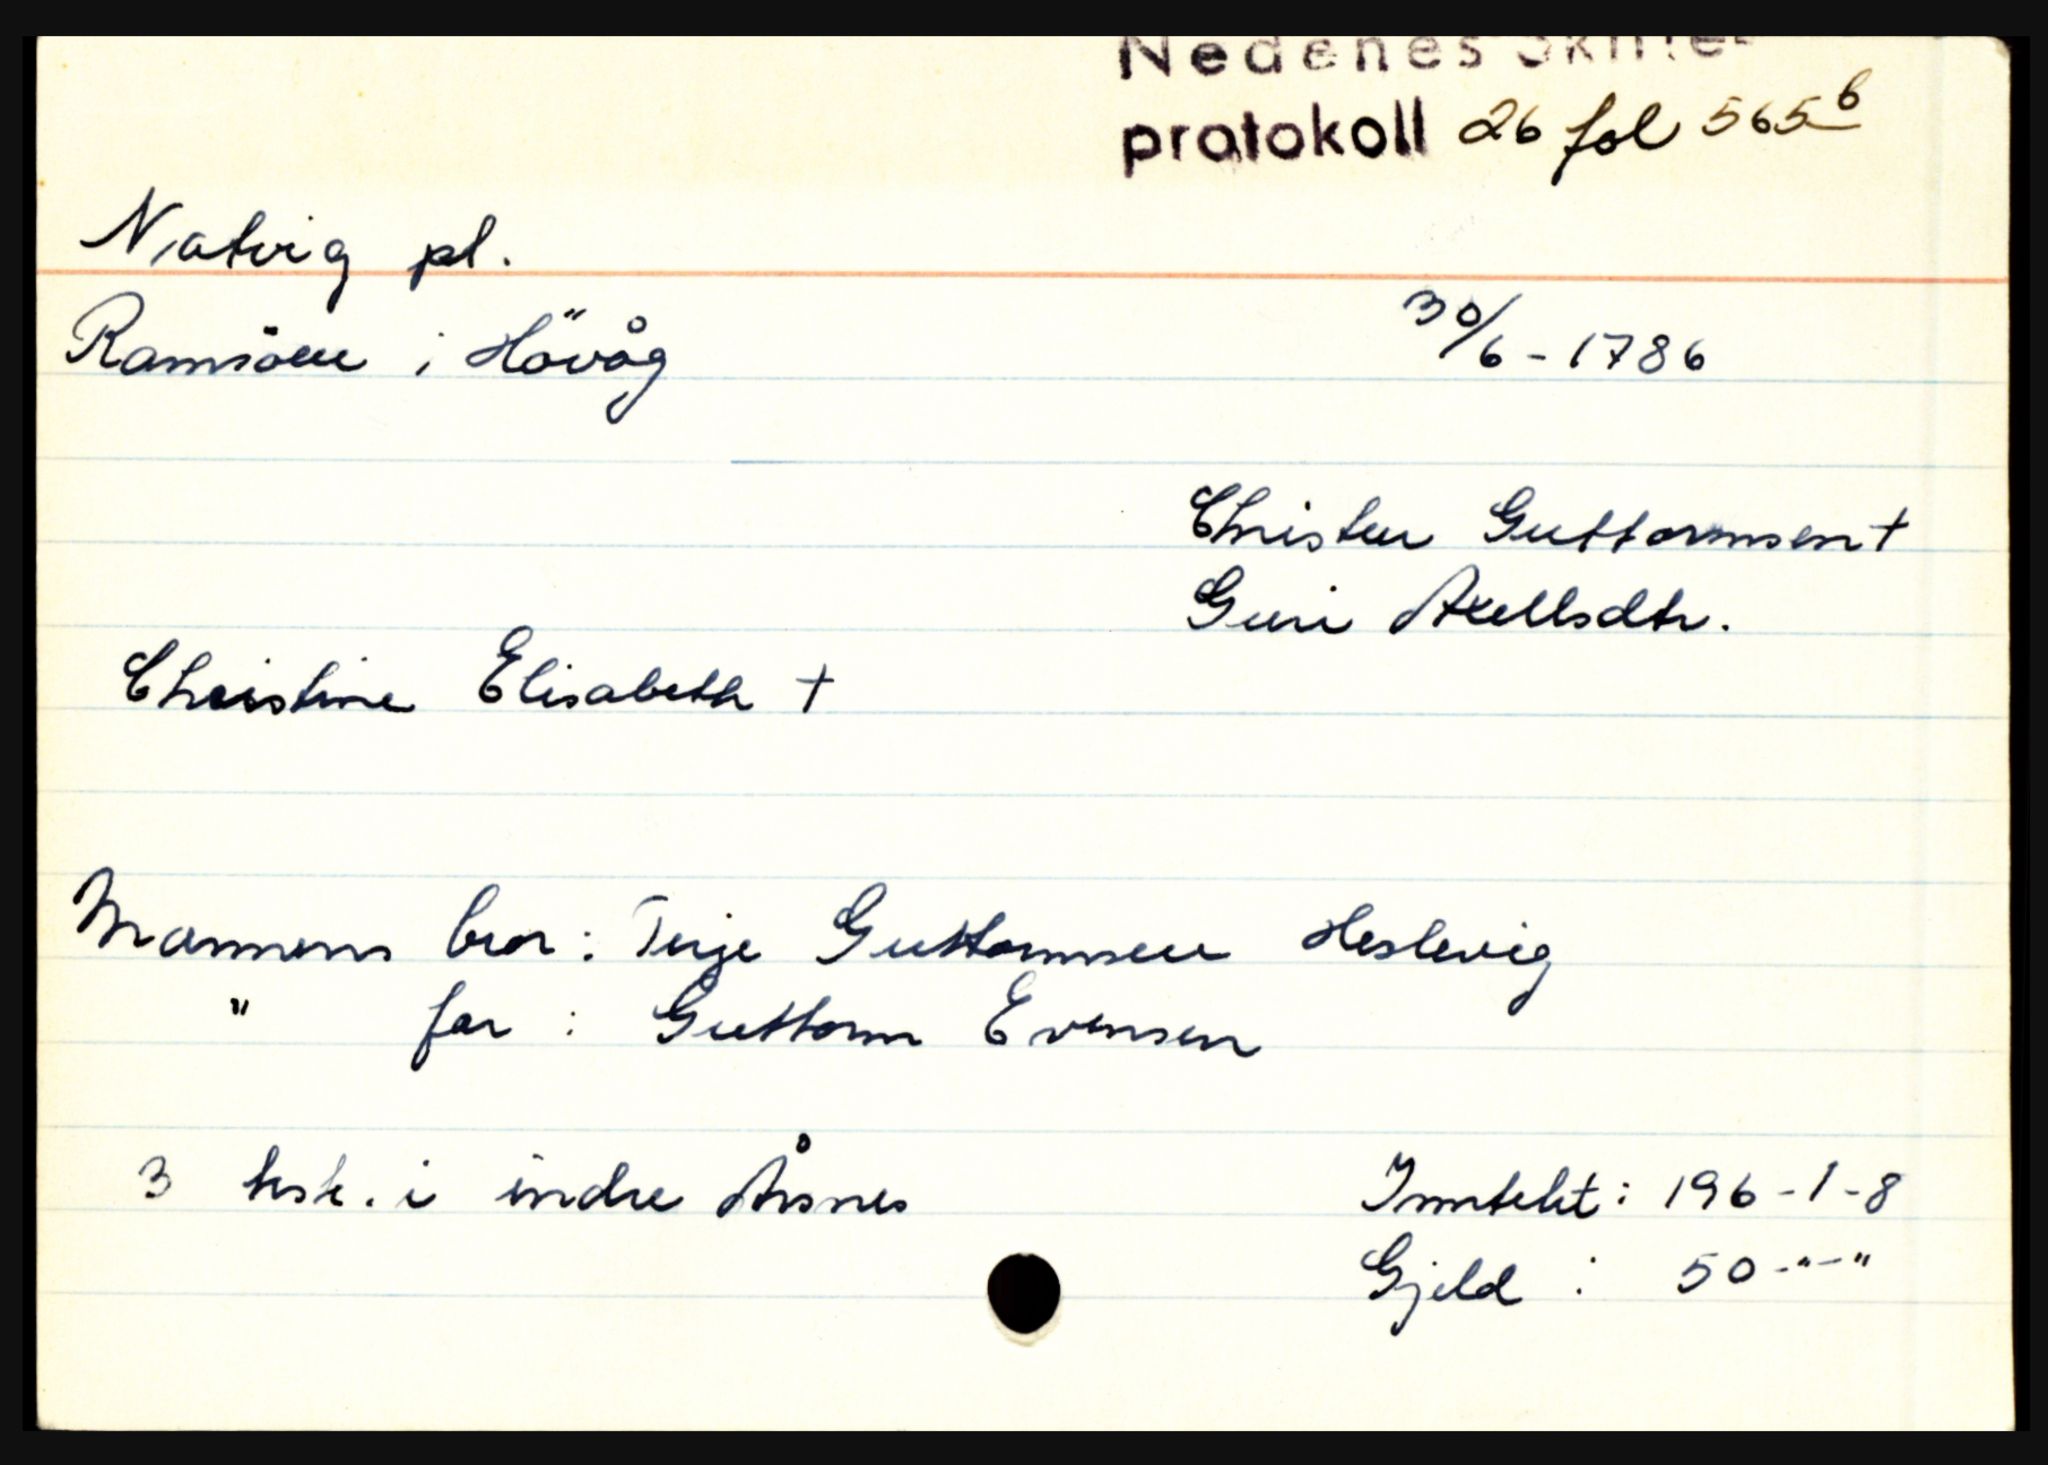 Nedenes Skifte-
protokoll 26 fol 565b
Natvig pl.
Ramsöen i Hövåg
30/6-1786
Christen Guttormsen +
Guri Axellsdtr.
Christine Elisabeth +
Mannens bror: Terje Guttormsen Heslevig
" far : Guttorm Evensen
3 hsk. i indre Årsnes
Inntekt: 196-1-8
Gjeld : 50-"-"